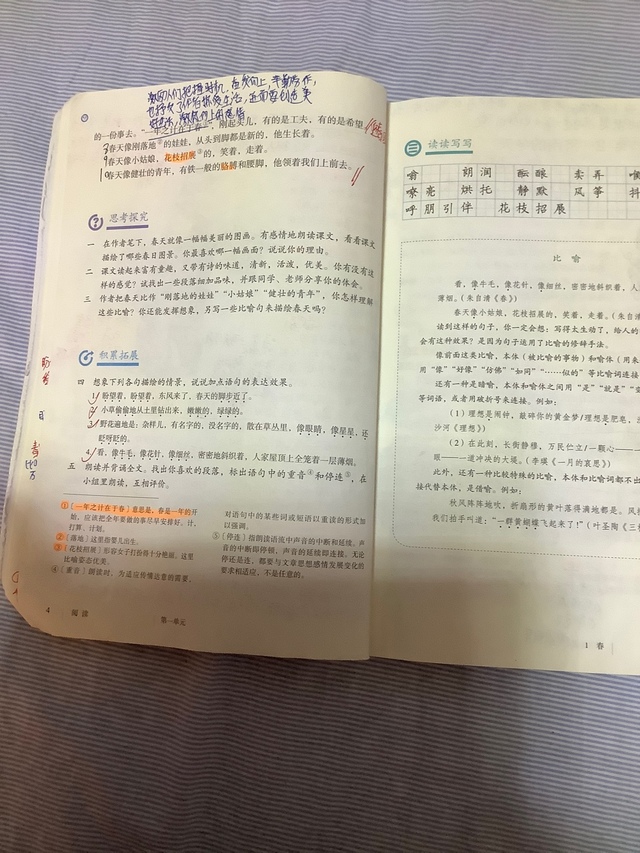 的一份事去。“一年之计在于春①”，刚起头儿，有的是工夫，有的是希望。
春天像刚落地②的娃娃，从头到脚都是新的，他生长着。
春天像小姑娘，花枝招展③的，笑着，走着。
10春天像健壮的青年，有铁一般的胳膊和腰脚，他领着我们上前去。
思考探究
一 在作者笔下，春天就像一幅幅美丽的图画。有感情地朗读课文，看看课文
描绘了哪些春日图景。你最喜欢哪一幅画面？说说你的理由。
二 课文读起来富有童趣，又带有诗的味道，清新，活泼，优美。你有没有这
样的感觉？试找出一些段落细加品味，并跟同学、老师分享你的体会。
三 作者把春天比作“刚落地的娃娃”“小姑娘”“健壮的青年”，你怎样理解
这些比喻？你还能发挥想象，另写一些比喻句来描绘春天吗？
积累拓展
四 想象下列各句描绘的情景，说说加点语句的表达效果。
1盼望着，盼望着，东风来了，春天的脚步近了。
2小草偷偷地从土里钻出来，嫩嫩的，绿绿的。
3野花遍地是：杂样儿，有名字的，没名字的，散在草丛里，像眼睛，像星星，还
眨呀眨的。
看，像牛毛，像花针，像细丝，密密地斜织着，人家屋顶上全笼着一层薄烟。
五 朗读并背诵全文。找出你喜欢的段落，标出语句中的重音④和停连⑤，在
小组里朗读，互相评价。
①〔一年之计在于春〕意思是，春是一年的开
始，应该把全年要做的事尽早安排好。计，
打算，计划。
②〔落地〕这里指婴儿出生。
③〔花枝招展〕形容女子打扮得十分艳丽。这里
比喻姿态优美。
④〔重音〕朗读时，为适应传情达意的需要，
对语句中的某些词或短语以重读的形式加
以强调。
⑤〔停连〕指朗读语流中声音的中断和延续。声
音的中断即停顿，声音的延续即连接。无论
停还是连，都要与文章思想感情发展变化的
要求相适应，不是任意的。
4 阅读 第一单元
读读写写
朗润 酝酿 卖弄
嘹亮 烘托 静默 风筝 抖
呼朋引伴 花枝招展
比喻
看，像牛毛，像花针，像细丝，密密地斜织着，人
薄烟。（朱自清《春》）
春天像小姑娘，花枝招展的，笑着，走着。（朱自清
读到这样的句子，你一定会想：写得太生动了，给人的
会有这种效果？是因为句子运用了比喻的修辞手法。
像前面这类比喻，本体（被比喻的事物）和喻体（用来
用“像”“好像”“仿佛”“如同”“……似的”等比喻词连接
还有一种是暗喻，本体和喻体之间用“是”“就是”“变
等词语，或者用破折号来连接。例如：
（1）理想是闹钟，敲碎你的黄金梦/理想是肥皂，
沙河《理想》）
（2）在此刻，长街静穆，万民伫立/一颗心——
眼——一道冲决的大堤。（李瑛《一月的哀思》）
此外，还有一种比较特殊的比喻，本体和比喻词都不出
接代替本体，是借喻。例如：
秋风阵阵地吹，折扇形的黄叶落得满地都是。风
我们拍手叫道：“一群黄蝴蝶飞起来了！”（叶圣陶《三
1 春